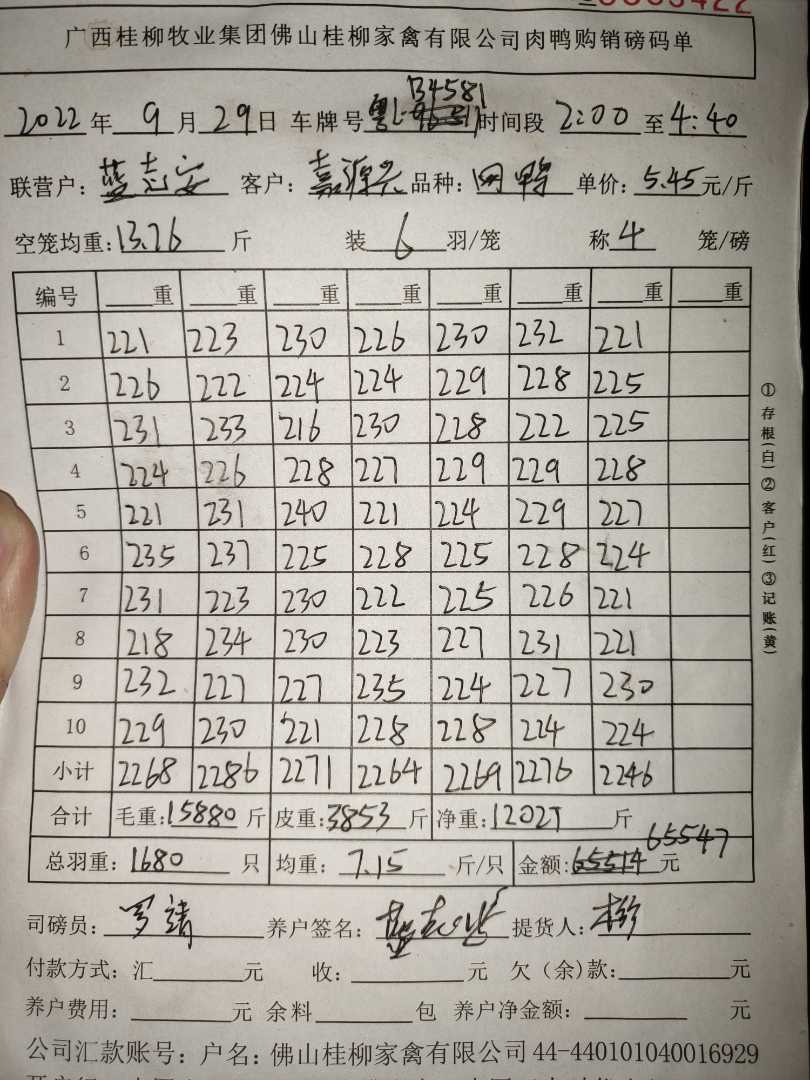 广西桂柳牧业集团佛山桂柳家禽有限公司肉鸭购销磅码单
2022年9月29日 车牌号粤L B4581 时间段2:00至4:40
联营户:蓝志安 客户:嘉源兴 品种: 单价:5.45元/斤
空笼均重:13.76斤 装6羽/笼 称4笼/磅
编号 重 重 重 重 重 重 重 重
1 221 223 230 226 230 232 221
2 226 222 224 224 229 228 225
3 231 233 216 230 228 222 225
4 224 226 228 227 229 229 228
5 221 231 240 221 224 229 227
6 235 237 225 228 225 228 224
7 231 223 230 222 225 226 221
8 218 234 230 223 227 231 221
9 232 227 227 235 224 227 230
10 229 230 221 228 228 224 224
小计 2268 2286 2271 2264 2269 2276 2246
合计 毛重:15880斤 皮重:3853斤 净重:12027斤
总羽重:1680只 均重:7.15斤/只 金额:65514 65547元
司磅员:罗靖 养户签名: 提货人:
付款方式:汇 元 收: 元 欠(余)款: 元
养户费用: 元 余料 包 养户净金额: 元
公司汇款账号:户名:佛山桂柳家禽有限公司44-440101040016929
①存根(白)②客户(红)③记账(黄)